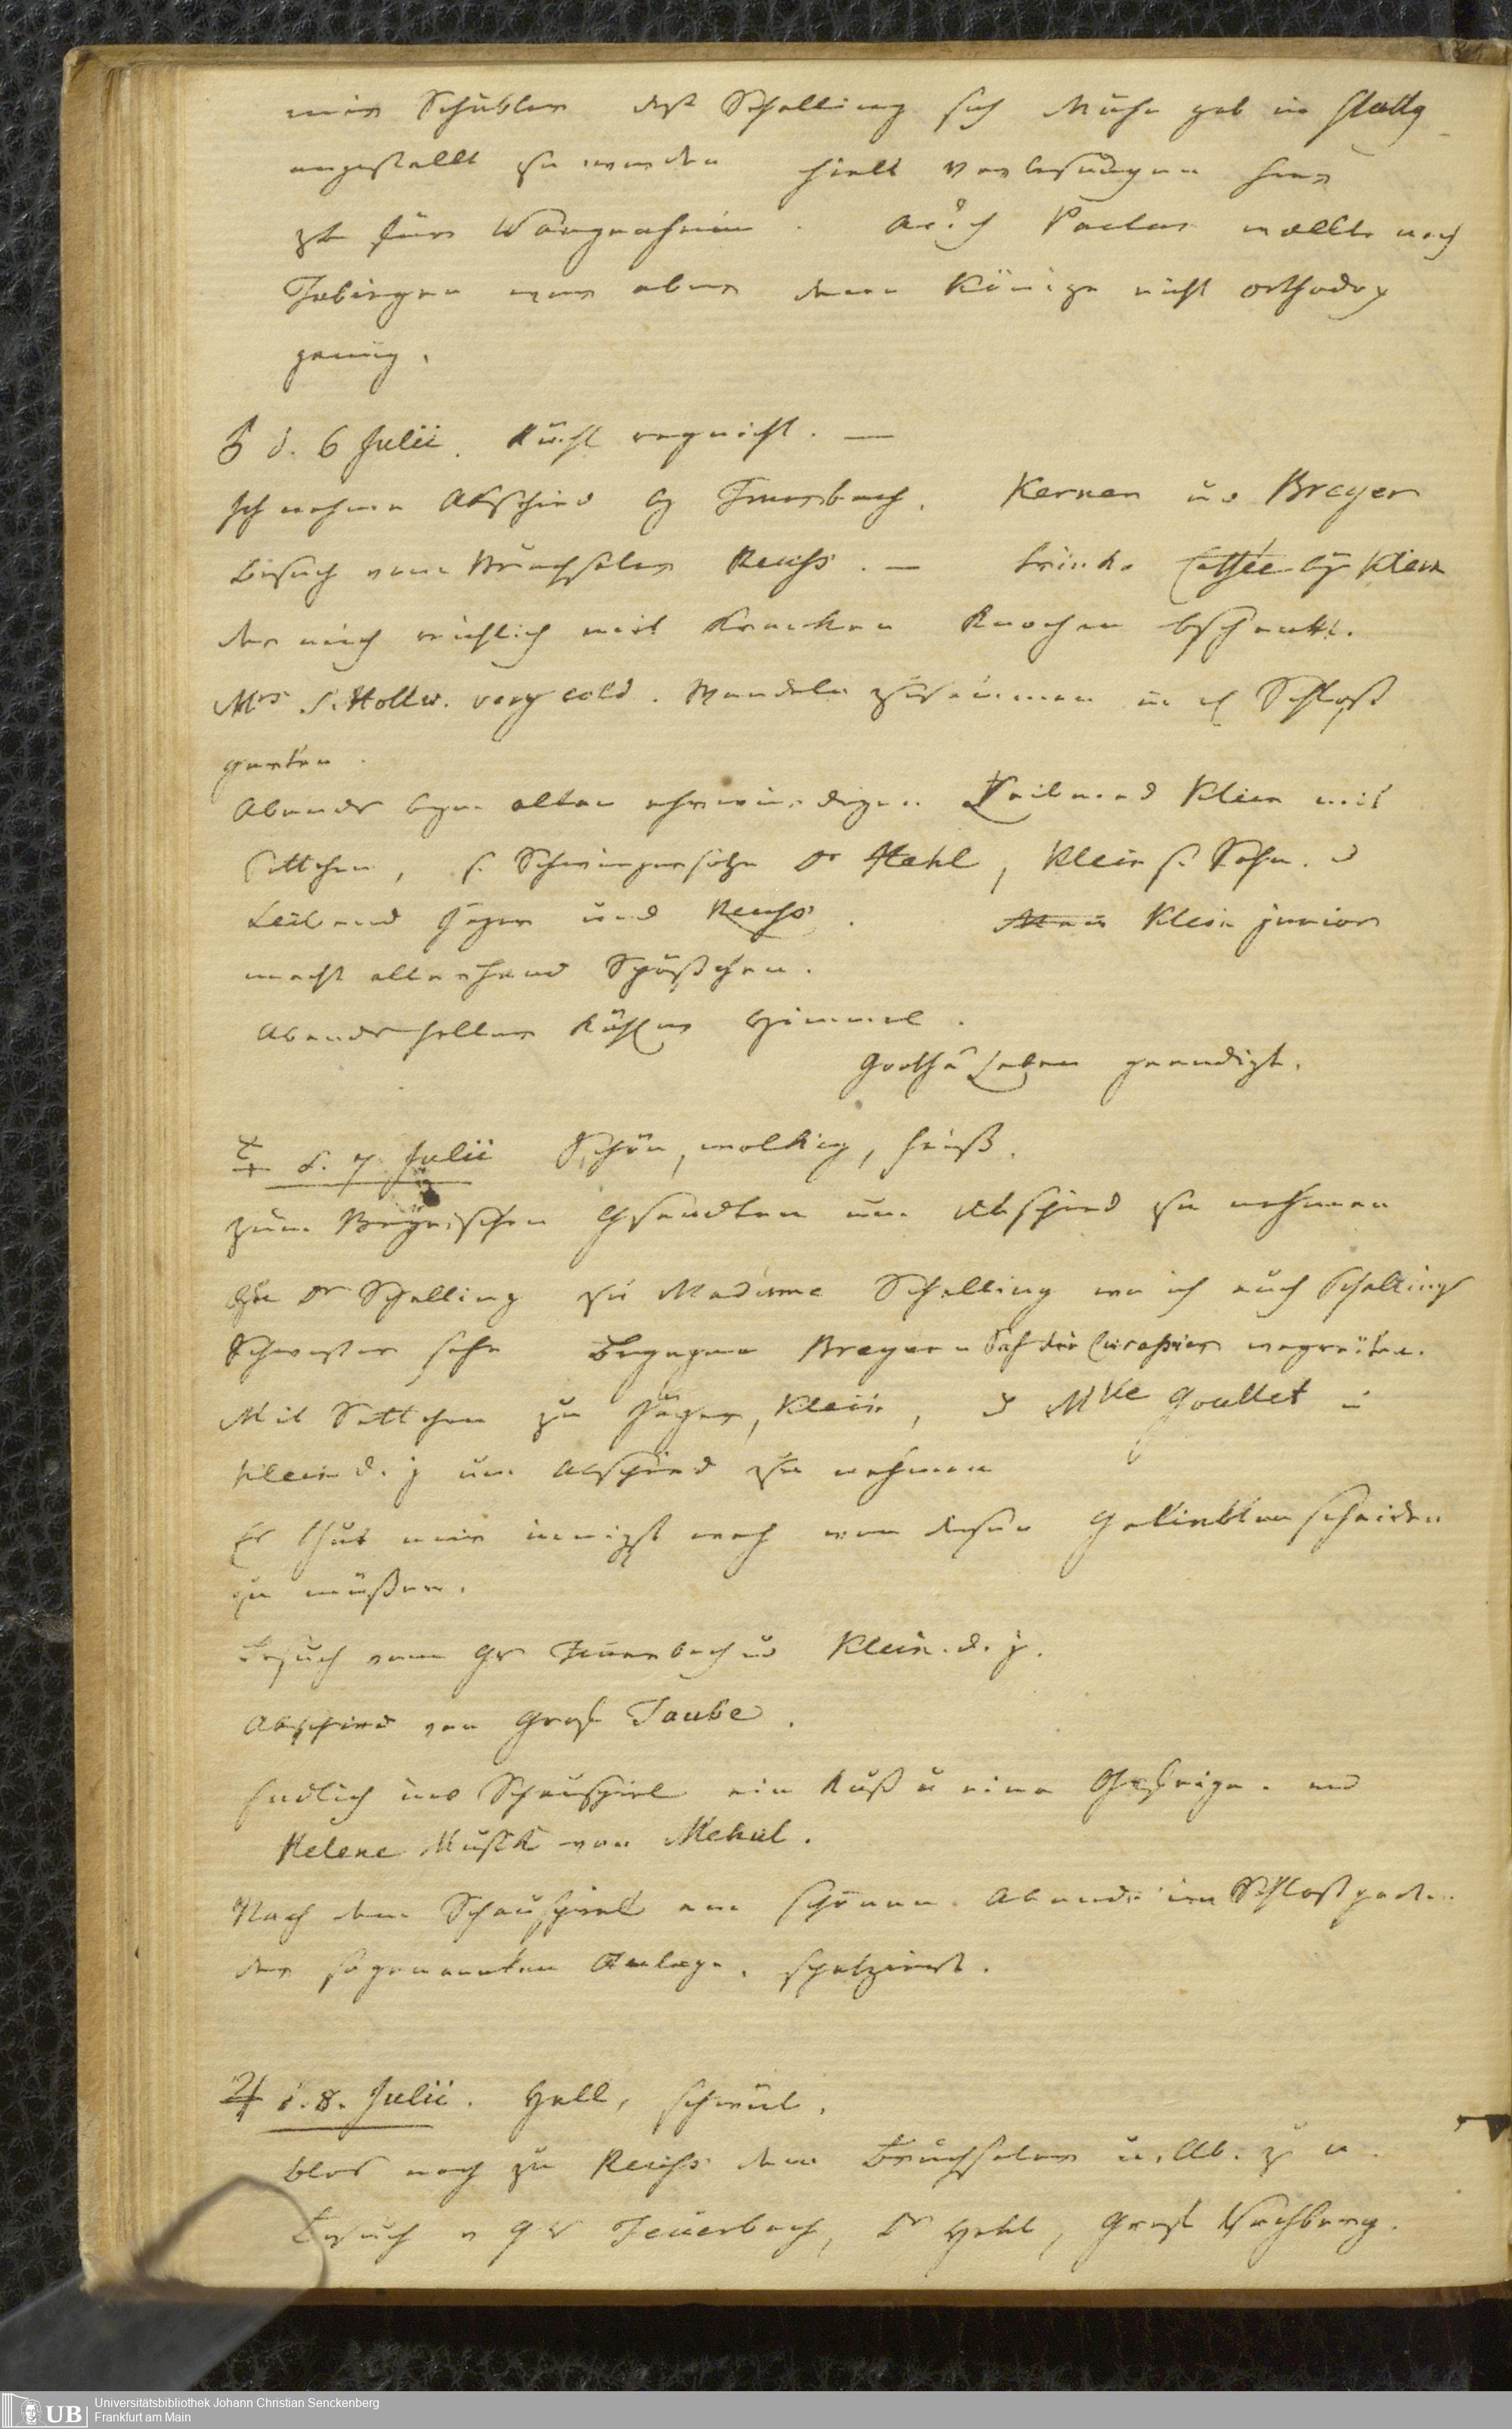 mir Schübler daß Schelling sich Mühe gab in Stuttg
angestellt zu werden hielt Vorlesungen hier
zb für Wangenheim. Auch Paulus wollte nach
Tübingen war aber dem Könige nicht orthodox
genug.
d. 6 Julii. Kühl regnicht. —
Ich nehme Abschied by Feuerbach. Kerner und Breyer
Besuch vom Bruchsaler Reuss. — trinke Caffée by Klein
der mich reichlich mit kranken Knochen beschenkt.
Mrs S. Hollw. very cold. Wandeln zusammen im Schloß
garten.
Abends beym alten ehrwürdigen Leibmed Klein mit
Settchen, s. Schwiegersohn Dr Hehl, Klein s. Sohn. u
Leibmed Jäger und Reuss. Klein junior
macht allerhand Späßchen.
Abends heller kühler Himmel.
Goethe Leben geendigt.
☿ d. 7 Julii Schön, wolkig, heiß.
zum Bayrischen Gesandten um Abschied zu nehmen
zu Dr Schelling zu Madame Schelling wo ich auch Schellings
Schwester sehe Begegne Breyer Sah die Cuirassiers wegreiten.
Mit Settchen zu Jäger, Klein, u Mlle Goullet u
Klein d. j um Abschied zu nehmen
Es thut mir innigst weh von diesen Geliebten scheiden
zu müßen.
Besuch vom Feuerbach und Klein. d. j.
Abschied von Graf Taube.
Endlich ins Schauspiel ein Kuß u eine Ohrfeige. und
Helene Musik von Mehul.
Nach dem Schauspiel am schönen Abende im Schloßgarten
der sogenannten Anlage. spatziert.
♃ d. 8. Julii. Hell, schwül.
blos noch zu Reuss dem Bruchsaler u. Ab. z n.
Besuch v Feuerbach, Dr Hehl, Graf
UB
Universitätsbibliothek Johann Christian Senckenberg
Frankfurt am Main